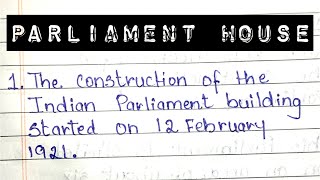 PARLIAMENT HOUSE
1. The construction of the
Indian Parliament building
started on 12 February
1921.